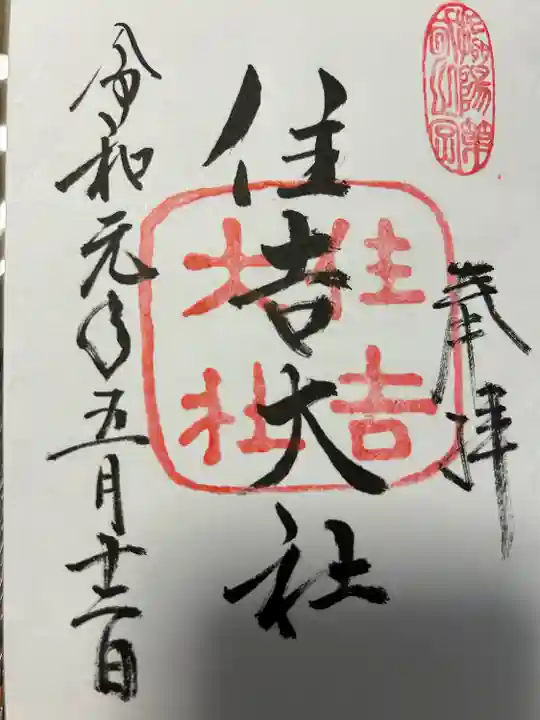 奉拝
住吉大社
住吉
大社
令和元年五月十二日